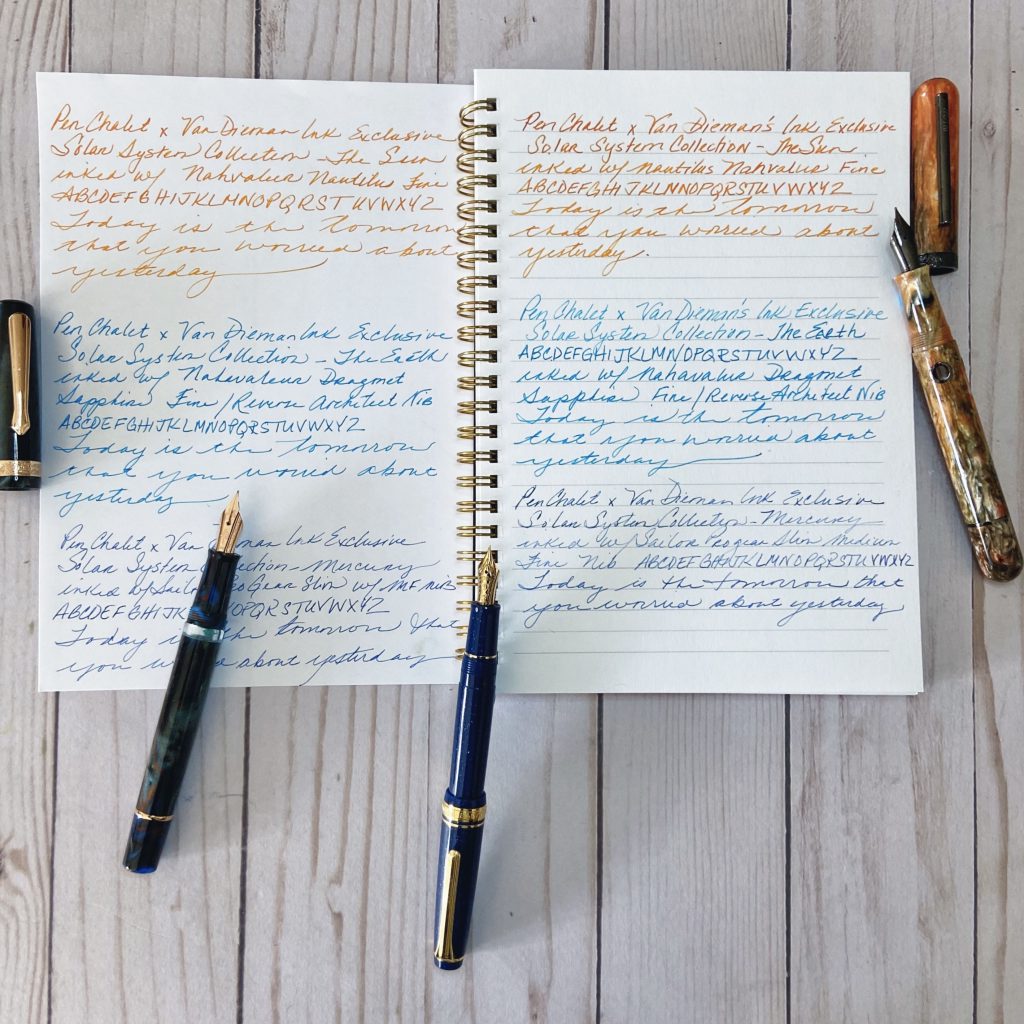 Pen Chalet x Van Dieman Ink Exclusive
Solar System Collection - The Sun
inked w/ Nahvalur Nautilus Fine
ABCDEFGHIJKLMNOPQRSTUVWXYZ
Today is the tomorrow
that you worried about
yesterday
Pen Chalet x Van Dieman Ink Exclusive
Solar System Collection - The Earth
inked w/ Nahavalur Dragonet
Sapphire Fine/Reverse Architect Nib
ABCDEFGHIJKLMNOPQRSTUVWXYZ
Today is the tomorrow
that you worried about
yesterday
Pen Chalet x Van man Ink Exclusive
Solar System ection - Mercury
inked w/ Sailo Pro Gear Slim w/ MF nib
ABCDEFGHIJK OPQRSTUVWXYZ
Today is the tomorrow that
you w about yesterday
Pen Chalet x Van Dieman's Ink Exclusive
Solar System Collection - The Sun
inked w/ nautilus Nahvalur Fine
ABCDEFGHIJKLMNOPQRSTUVWXYZ
Today is the tomorrow
that you worried about
yesterday.
Pen Chalet x Van Dieman's Ink Exclusive
Solar System Collection - The Earth
ABCDEFGHIJKLMNOPQRSTUVWXYZ
inked w/ Nahavalur Dragonet
Sapphire Fine/Reverse Architect Nib
Today is the tomorrow
that you worried about
yesterday
Pen Chalet x Van Dieman Ink Exclusive
Solar System Collection - Mercury
inked w/ Sailor Pro gear Slim Medium
Fine Nib ABCDEFGHIJKLMNOPQRSTUVWXYZ
Today is the tomorrow that
you worried about yesterday